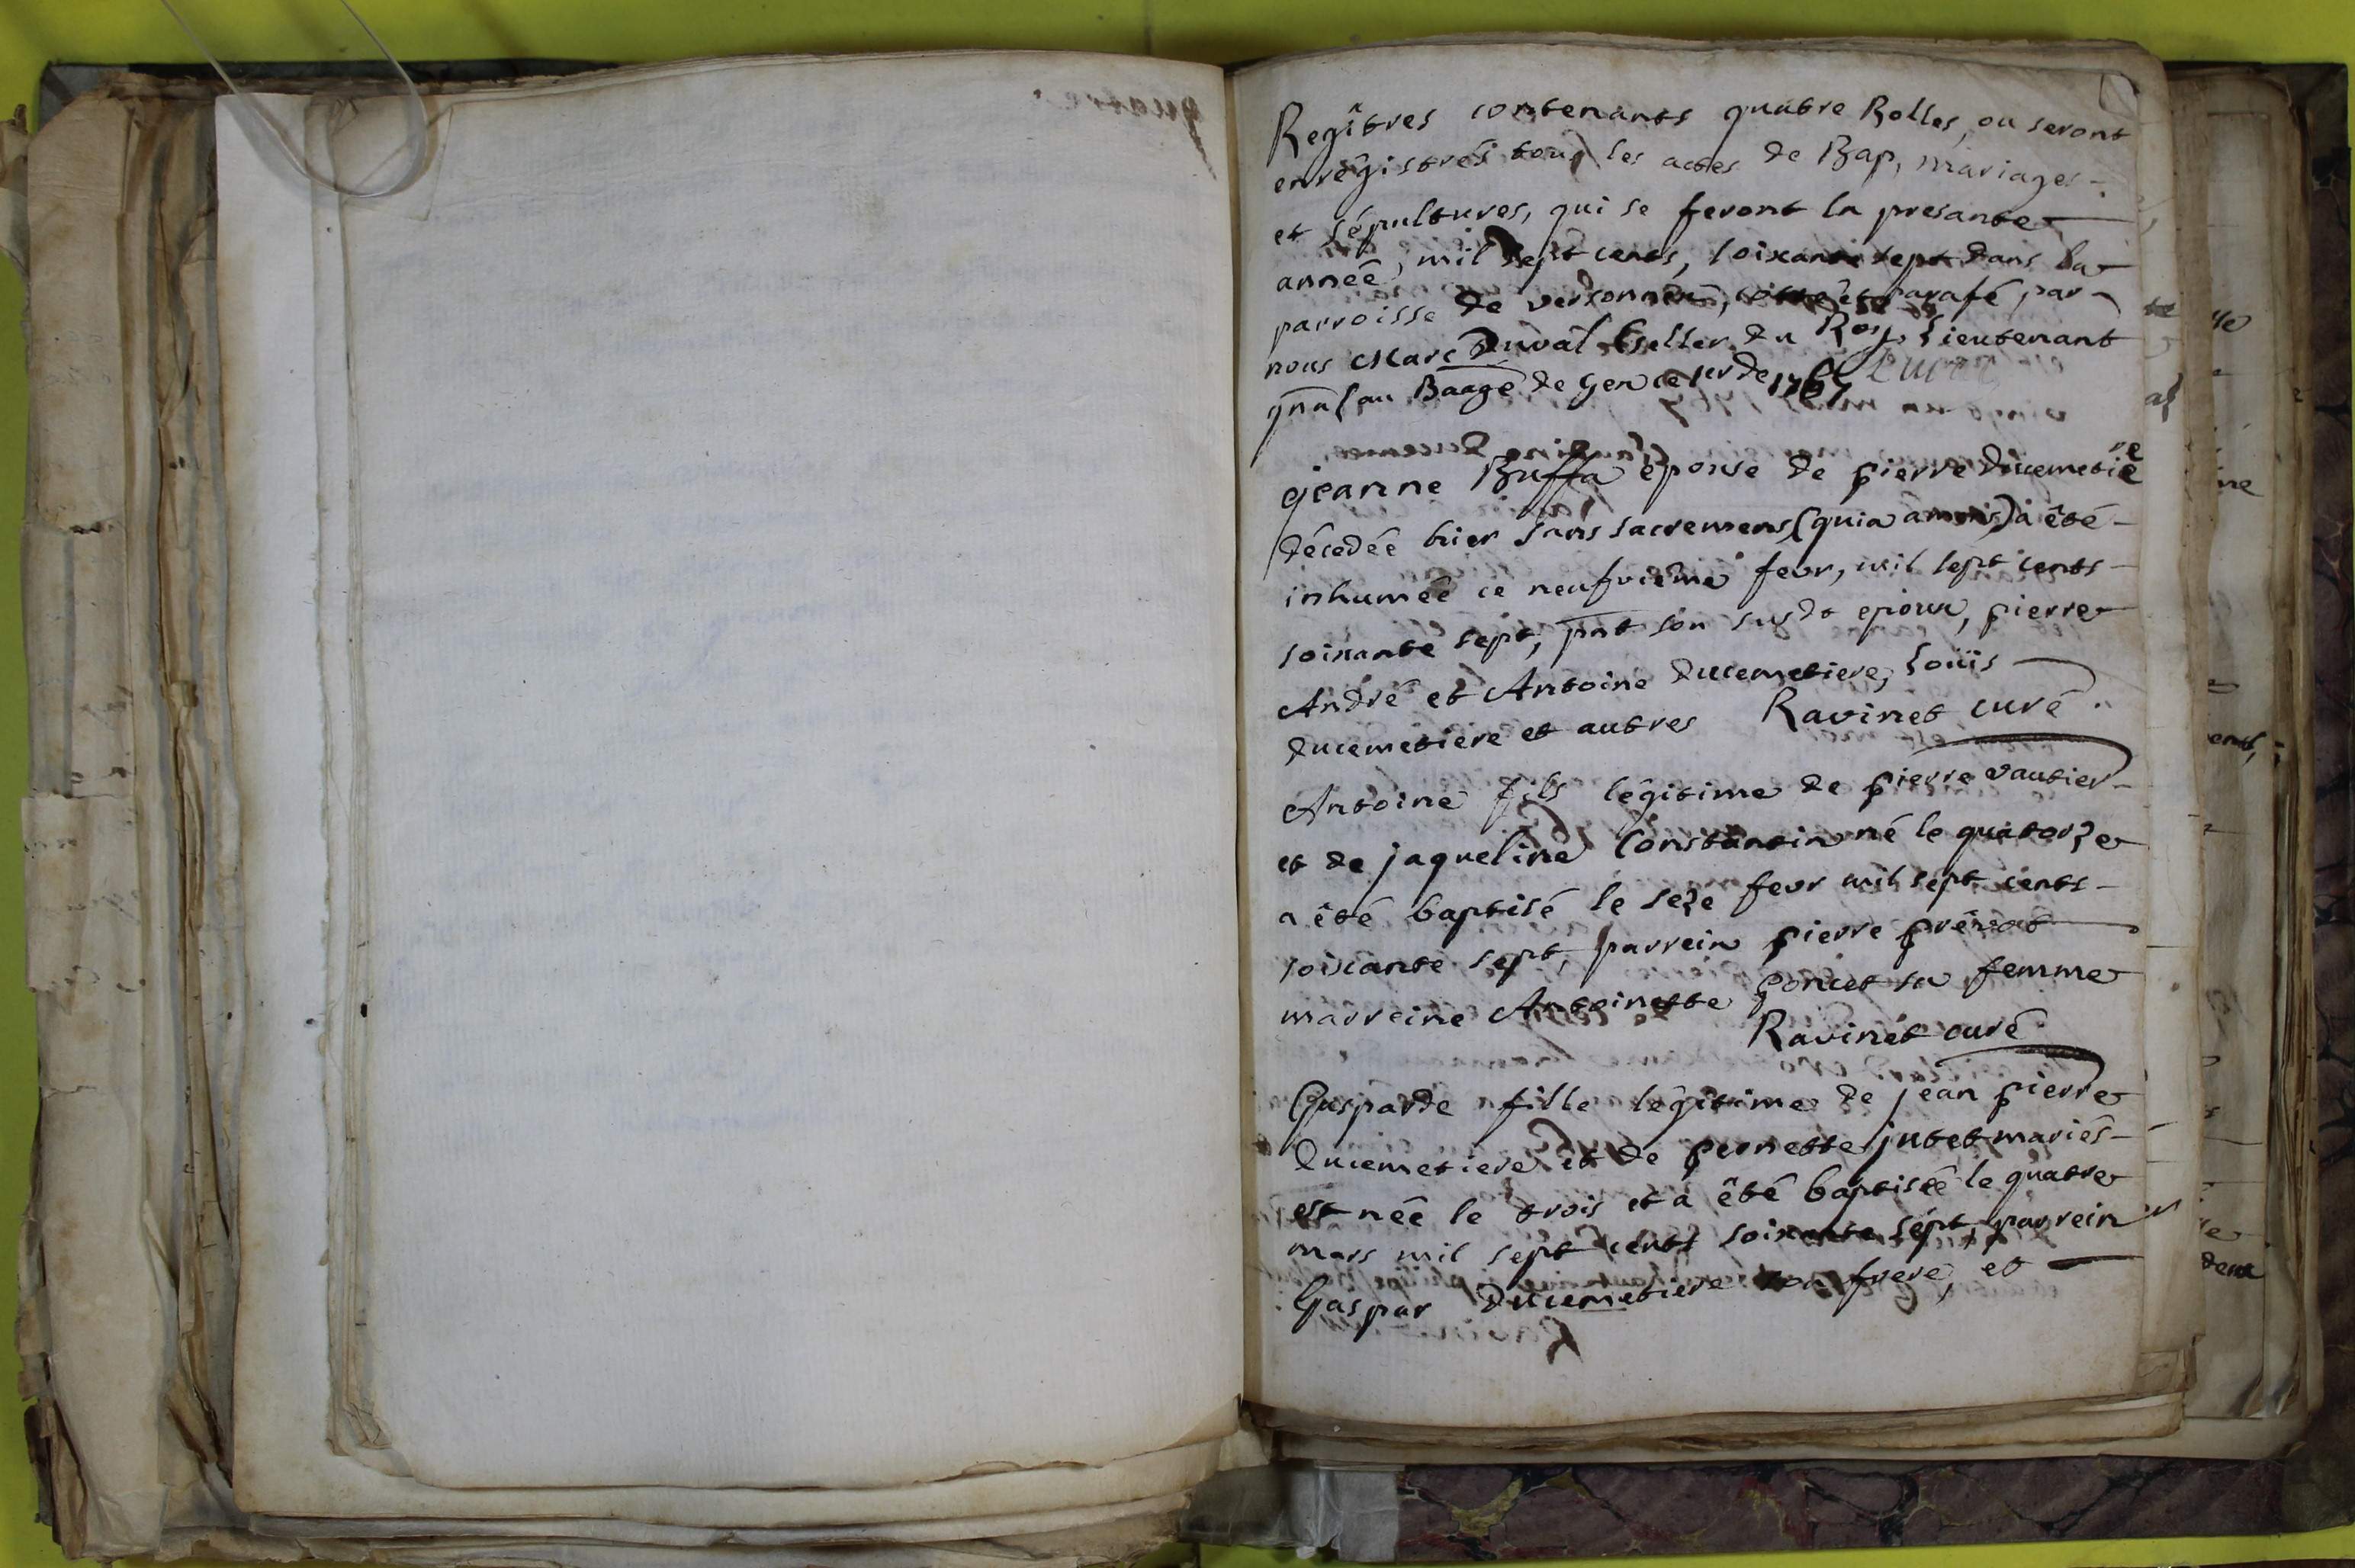 Regîtres contenants quatre Rolles, ou seront
enrêgistrés tous les actes de Bap, mariages
et sépultures, qui se feront la presante
année, mil sept cents, soixante sept dans la
parroisse de versonnex, cotté et parafé par
nous Marc Duval Cseller du Roy, Lieutenant
gñal au Baage de Gex ce 1er de 1767 Duval
jeanne Buffa êpouse de pierre Ducemetiere
décedée hier sans sacremens (quia amens) à êté
inhumée ce neufvième fevr, mil sept cents
soixante sept, pnt son susdt epoux, pierre
André et Antoine Ducemetiere, Loüis
Ducemetiere et autres Ravinet curé
Antoine fils légitime de pierre vautier
et de jaqueline Constantin né le quatorze
a êté baptisé le seze fevr mil sept cents
soixante sept, parrein pierre prêvost
marreine Antoinette poncet sa femme
Ravinet curé
Gasparde fille légitime de jean pierre
Ducemetiere et de pernette jutet mariés
est née le trois et a êté baptisée le quatre
mars mil sept cents soixante sept, parrein
Gaspar Ducemetiere son frere, et